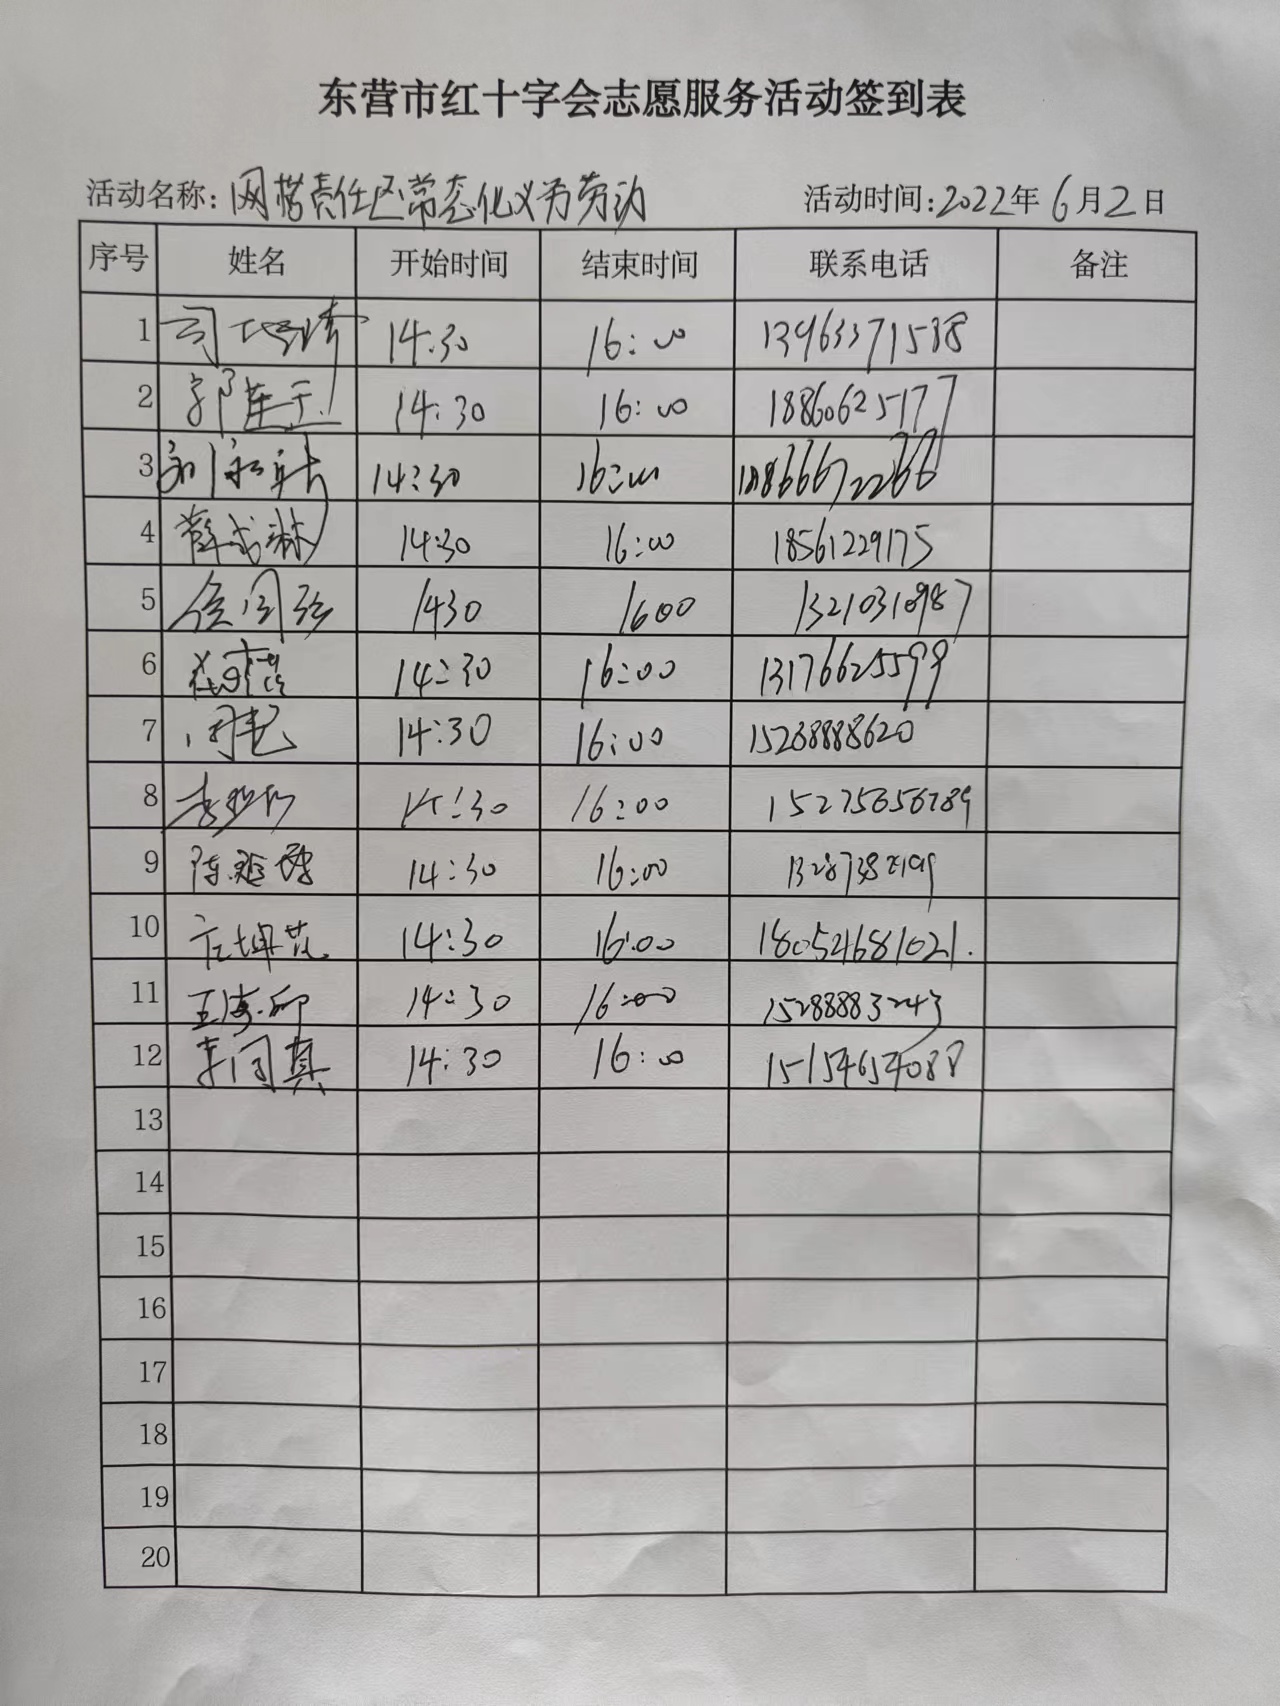 东营市红十字会志愿服务活动签到表
活动名称: 网格责任区常态化义务劳动 活动时间:2022年6月2日
序号 姓名 开始时间 结束时间 联系电话 备注
1 14:30 16:00 13963371538
2 14:30 16:00 18860625177
3 14:30 16:00
4 薛成琳 14:30 16:00 18561229175
5 1430 1600 13210310987
6 14:30 16:00 13176625599
7 14:30 16:00 15268888620
8 14:30 16:00 15275656789
9 14:30 16:00
10 14:30 16:00 18054681021.
11 14:30 16:00 15288883243
12 李同真 14:30 16:00 15154654088
13
14
15
16
17
18
19
20